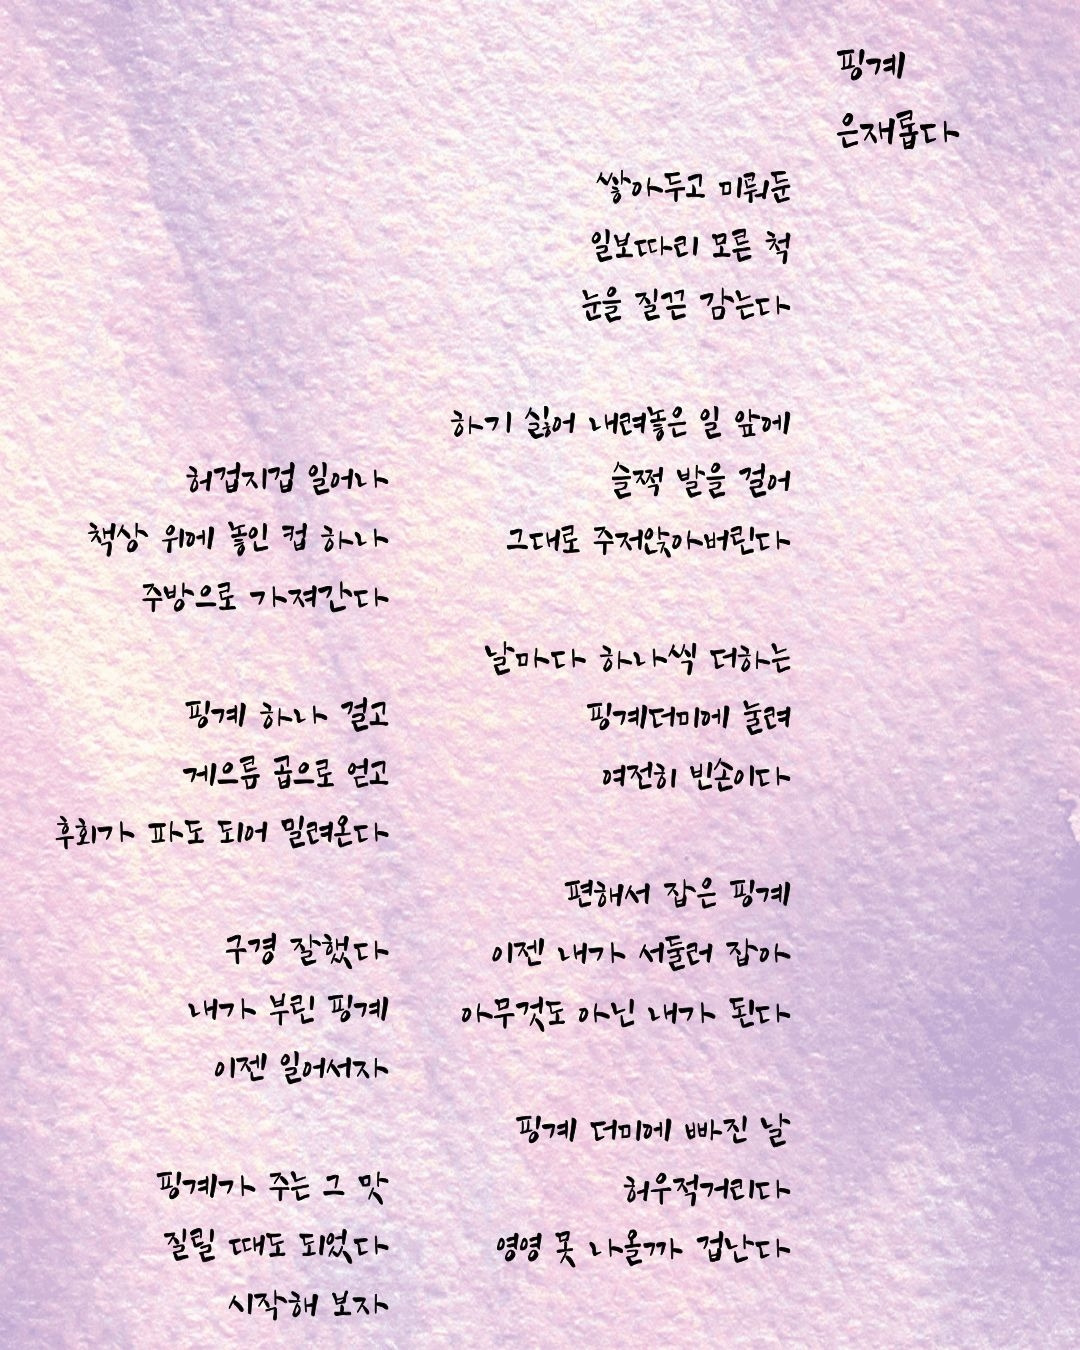 핑계
은재롭다
쌓아두고 미뤄둔
일보따리 모른 척
눈을 질끈 감는다
하기 싫어 내려놓은 일 앞에
슬쩍 발을 걸어
그대로 주저앉아버린다
날마다 하나씩 더하는
핑계더미에 눌려
여전히 빈손이다
편해서 잡은 핑계
이젠 내가 서둘러 잡아
아무것도 아닌 내가 된다
핑계 더미에 빠진 날
허우적거린다
영영 못 나올까 겁난다
허겁지겁 일어나
책상 위에 놓인 컵 하나
주방으로 가져간다
핑계 하나 걸고
게으름 곱으로 얻고
후회가 파도 되어 밀려온다
구경 잘했다
내가 부린 핑계
이젠 일어서자
핑계가 주는 그 맛
질릴 때도 되었다
시작해 보자